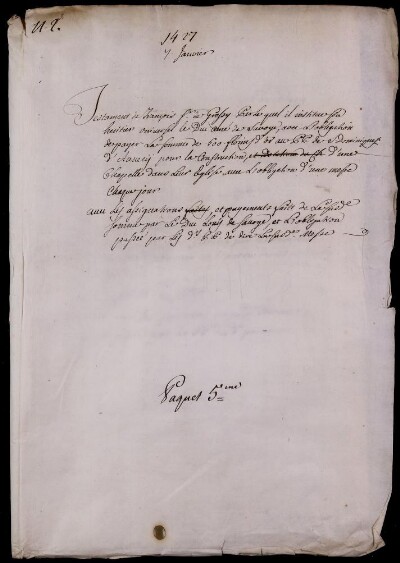 N. 2.
1427
7 Janvier
Testament de François Sr. de Gresy Par le quel il institue son
heritier universel le Duc Amé de Savoye, avec L'obligation
de payer la somme de 600 florins d'or aux RR. de St Dominique
d'Annecy pour la Construction et dotation d'une
Chapelle dans leur Eglise avec L'obligation d'une messe
chaque jour
avec les assignations faites, et payements faits de la susde
somme par Le Duc Louis de Savoye, et L'obligation
passée par les ds. RR. de dire La susde. Messe
Paquet 5.me